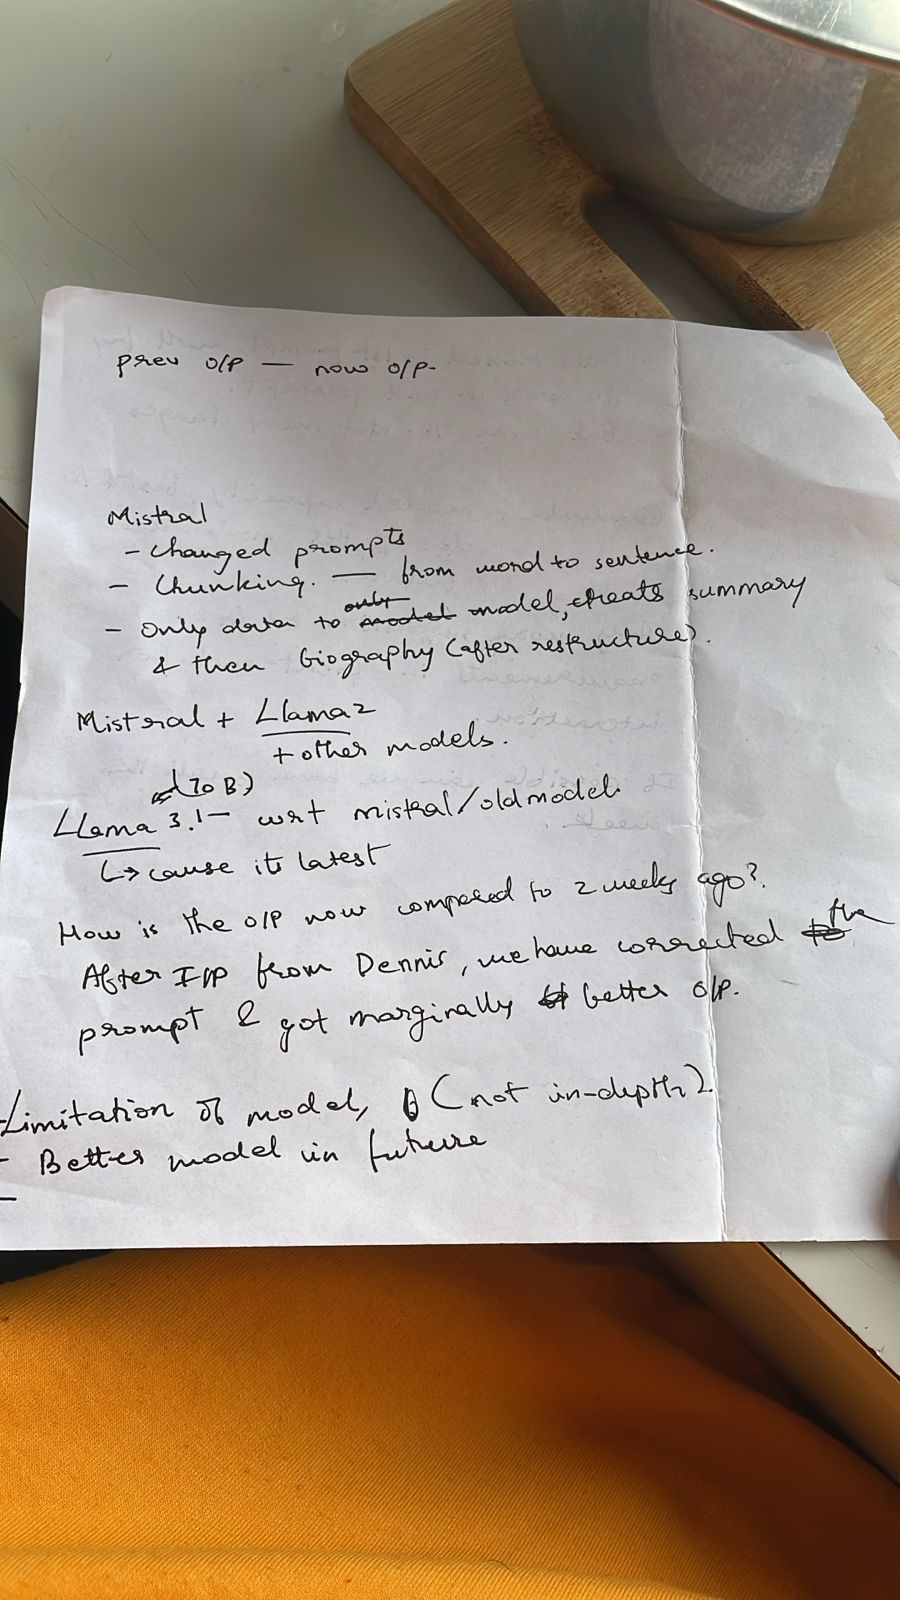 prev o/p — now o/p.
Mistral
- Changed prompts
- Chunking. — from word to sentence.
only
- Only data to model model, creats summary
& then biography (after restructure).
Mistral + Llama2
+ other models.
(70B)
Llama 3.1 — wrt mistral/old model.
↳ cause its latest
How is the o/p now compared to 2 weeks ago?
After I/p from Dennis, we have corrected the
prompt & got marginally better o/p.
- Limitation of model, (not in-depth).
- Better model in future
-